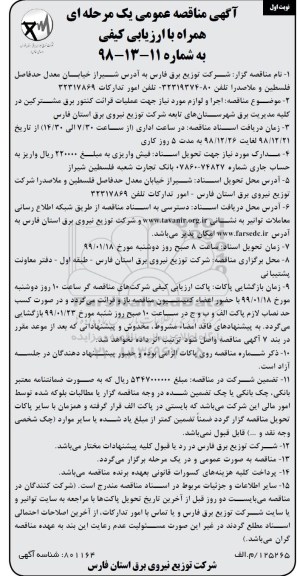 نوبت اول
آگهی مناقصه عمومی یک مرحله ای
همراه با ارزیابی کیفی
به شماره ۱۱-۱۳-۹۸
۱- نام مناقصه گزار: شرکت توزیع برق فارس به آدرس شیراز خیابان معدل حدفاصل
فلسطین و ملاصدرا تلفن ۸۰-۳۲۳۱۹۳۷۴ تلفن امور تدارکات ۳۲۳۱۷۸۶۹
۲- موضوع مناقصه: اجرا و لوازم مورد نیاز جهت عملیات قرائت کنتور برق مشترکین در
کلیه مدیریت برق شهرستان‌های تابعه شرکت توزیع نیروی برق استان فارس
۳- زمان دریافت اسناد مناقصه: در ساعت اداری (از ساعت ۷/۳۰ الی ۱۴/۳۰) از تاریخ
۹۸/۱۲/۲۱ لغایت ۹۸/۱۲/۲۶ به مدت ۵ روز کاری
۴- مدارک مورد نیاز جهت تحویل اسناد: فیش واریزی به مبلغ ۲۲۰۰۰۰ ریال واریز به
حساب جاری شماره ۰۷۸۶۰۰۷۴۸۲۷ بانک تجارت شعبه فلسطین شیراز
۵- آدرس محل تحویل اسناد: شیراز خیابان معدل حدفاصل فلسطین و ملاصدرا شرکت
توزیع برق فارس - امور تدارکات تلفن ۳۲۳۱۷۸۶۹
۶- آدرس محل دریافت اسناد: دسترسی به اسناد مناقصه از طریق شبکه اطلاع رسانی
معاملات توانیر به نشانی www.tavanir.org.ir و شرکت توزیع نیروی برق استان فارس به
آدرس www.farsedc.ir امکان پذیر می‌باشد.
۷- زمان تحویل اسناد: ساعت ۸ صبح روز دوشنبه مورخ ۹۹/۰۱/۱۸
۸- محل برگزاری مناقصه: شرکت توزیع نیروی برق فارس - طبقه اول - دفتر معاونت
پشتیبانی
۹- زمان بازگشایی پاکات: پاکت ارزیابی کیفی شرکت‌های مناقصه گر ساعت ۱۰ روز دوشنبه
مورخ ۹۹/۰۱/۱۸ با حضور اعضاء کمیسیون مناقصه باز و قرائت می‌گردد و در صورت کسب
حد نصاب لازم پاکت الف و ب و ج در ساعت ۱۰ صبح روز شنبه مورخ ۹۹/۰۱/۲۳ بازگشایی
می‌گردد. به پیشنهادهای فاقد امضاء مشروط، مخدوش و پیشنهاداتی که بعد از موعد مقرر
در بند ۷ آگهی مناقصه واصل شود ترتیب اثر داده نخواهد شد.
۱۰- ذکر شماره مناقصه روی پاکات الزامی بوده و حضور پیشنهاد دهندگان در جلسه
آزاد است.
۱۱- تضمین شرکت در مناقصه: مبلغ ۵۳۴۷۰۰۰۰۰۰ ریال که به صورت ضمانتنامه معتبر
بانکی، چک بانکی یا چک تضمین شده در وجه مناقصه گزار یا مطالبات بلوکه شده توسط
امور مالی این شرکت می‌باشد که بایستی در پاکت الف قرار گرفته و همزمان با سایر پاکات
تحویل مناقصه گزار گردد ضمناً تضمین کمتر از مبلغ یاد شده یا سایر موارد (چک شخصی
وجه نقد و ...) قابل قبول نمی‌باشد.
۱۲- شرکت توزیع برق فارس در رد یا قبول کلیه پیشنهادات مختار می‌باشد.
۱۳- مناقصه به صورت عمومی و در یک مرحله برگزار می‌گردد.
۱۴- پرداخت کلیه هزینه‌های کسورات قانونی بعهده برنده مناقصه می‌باشد.
۱۵- سایر اطلاعات و جزئیات مربوط در اسناد مناقصه مندرج است. (شرکت کنندگان در
مناقصه می‌بایست دو روز قبل از آخرین تاریخ تحویل پاکت‌ها با مراجعه به سایت توانیر و
یا سایت شرکت توزیع برق فارس و یا تماس با امور تدارکات، از آخرین اصلاحات احتمالی
اسناد مطلع گردند در غیر این صورت مسئولیت عدم رعایت این بند به عهده مناقصه
گران می‌باشد.)
۱۲۵۲۶۵/م الف شناسه آگهی: ۸۰۱۱۶۴
شرکت توزیع نیروی برق استان فارس